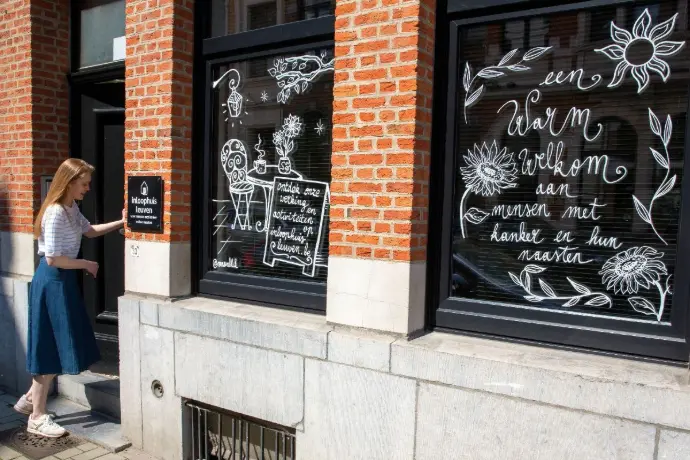 inloophuis
leuven
Ontdek onze
werking en
activiteiten
op
inloophuis-
leuven.be
een
Warm
Welkom
aan
mensen met
kanker en hun
naasten